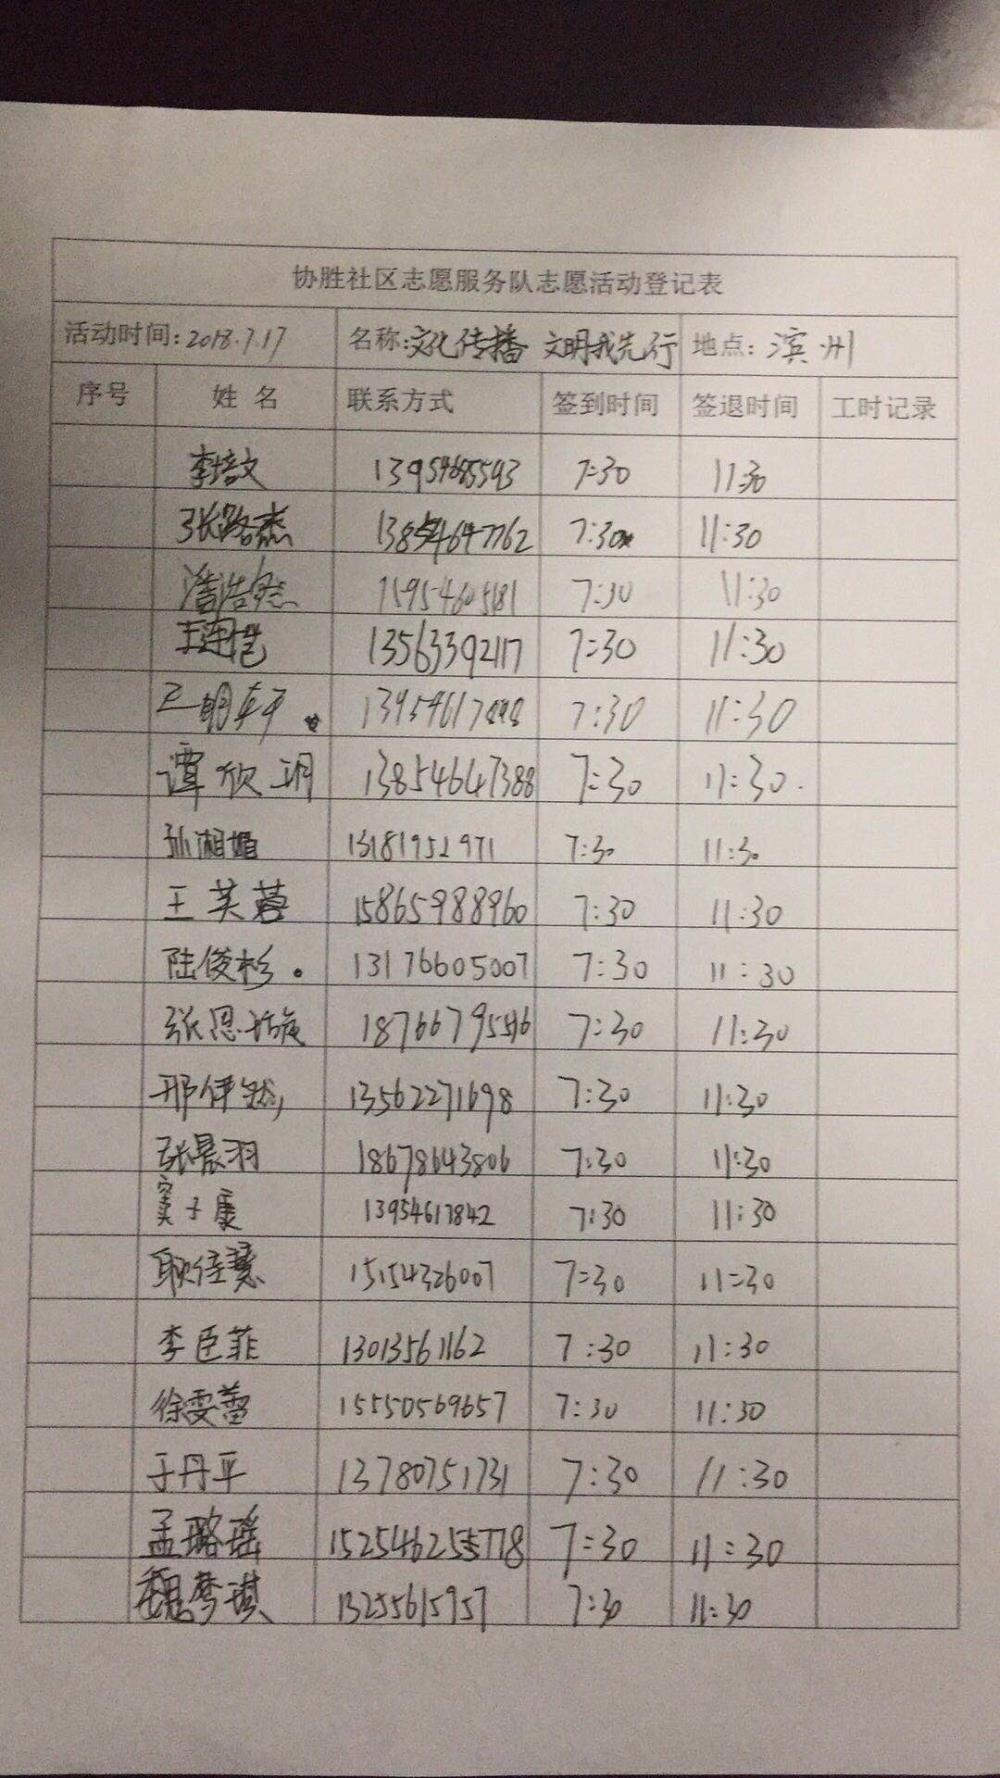 协胜社区志愿服务队志愿活动登记表
活动时间:2018.7.17 名称:文化传播 文明我先行 地点:滨州
序号 姓名 联系方式 签到时间 签退时间 工时记录
李培文 7:30 11:30
张路杰 7:30 11:30
7:30 11:30
13563392117 7:30 11:30
7:30 11:30
谭欣玥 13854647388 7:30 11:30.
13181952971 7:30 11:30
王芙蓉 15865988960 7:30 11:30
陆俊杉. 13176605007 7:30 11:30
7:30 11:30
邢伊然, 13562271698 7:30 11:30
张晨羽 18678643806 7:30 11:30
窦子康 13954617842 7:30 11:30
耿佳慧 15154326007 7:30 11:30
李臣菲 13013561162 7:30 11:30
徐雯蕾 15550569657 7:30 11:30
于丹平 13780751731 7:30 11:30
孟璐瑶 7:30 11:30
魏梦琪 13255615957 7:30 11:30